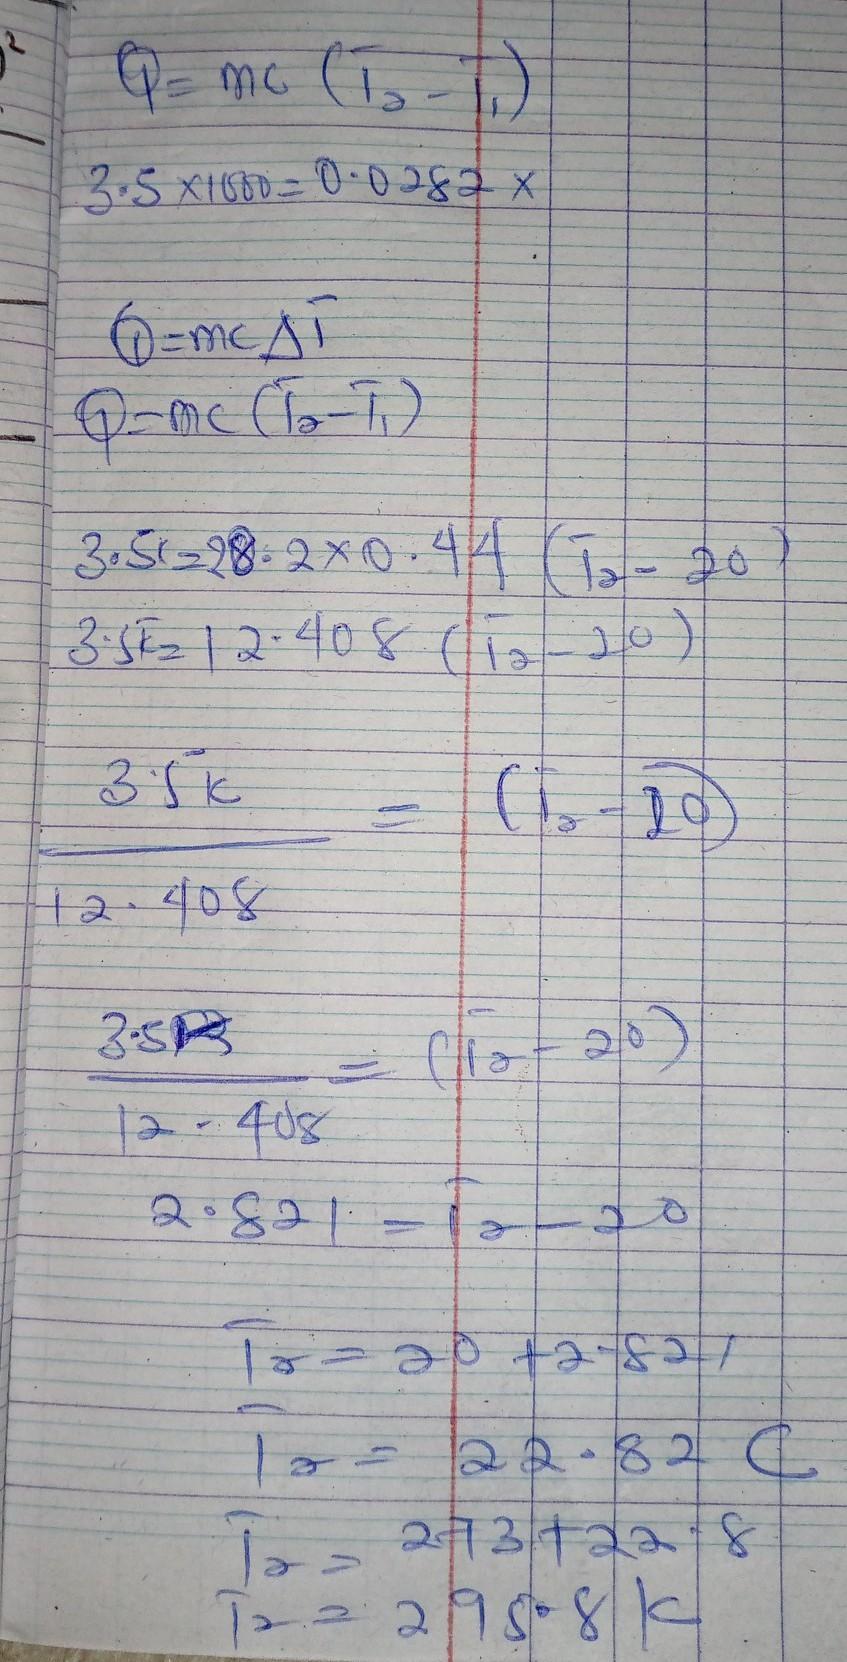 2
Q = mc (T₂ - T₁)
3.5 x 1000 = 0.0282 x
Q = mc ΔT
Q = mc (T₂ - T₁)
3.5k = 28.2 x 0.44 (T₂ - 20)
3.5k = 12.408 (T₂ - 20)
3.5k = (T₂ - 20)
12.408
3.5 = (T₂ - 20)
12.408
2.821 = T₂ - 20
T₂ = 20 + 2.821
T₂ = 22.82 C
T₂ = 273 + 22.8
T₂ = 295.8 K